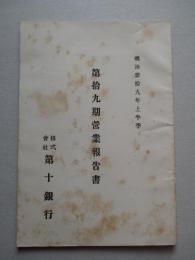 明治参拾九年上半季
第拾九期營業報告書
株式會社 第十銀行